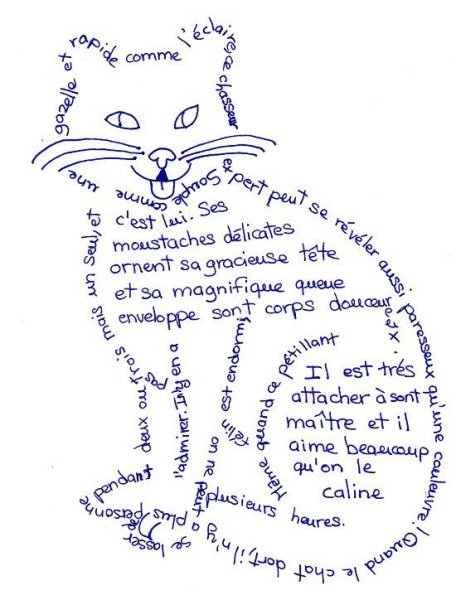 Souple comme une
gazelle et rapide comme l'éclaire, ce chasseur
expert peut se révéler aussi paresseux qu'une couleuvre! Quand le chat dort, il n'y a plus personne pendant
plusieurs heures.
Même quand ce pétillant
félin est endormi,
on ne peut
se lasser de
l'admirer. Il n'y en a
pas
deux ou trois mais un seul, et
c'est lui. Ses
moustaches délicates
ornent sa gracieuse tête
et sa magnifique queue
enveloppe sont corps douceureux.
Il est trés
attacher à sont
maître et il
aime beaucoup
qu'on le
caline